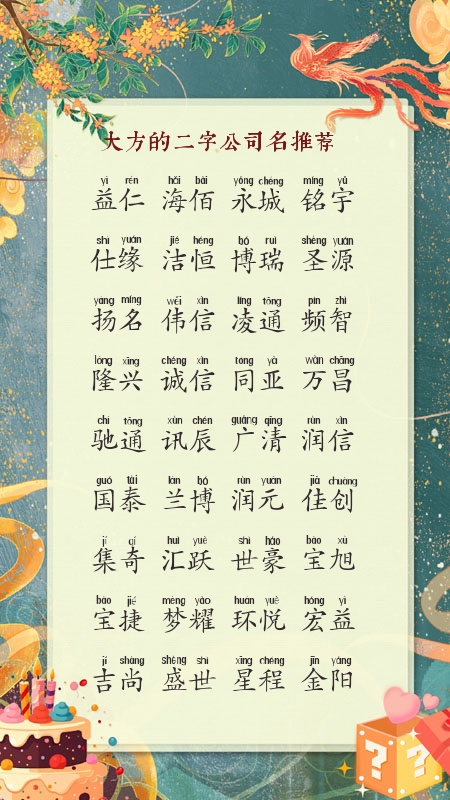 大方的二字公司名推荐
yì rén hǎi bǎi yǒng chéng míng yǔ
益仁 海佰 永城 铭宇
shì yuán jié héng bó ruì shèng yuán
仕缘 洁恒 博瑞 圣源
yáng míng wěi xìn líng tōng pín zhì
扬名 伟信 凌通 频智
lóng xīng chéng xìn tóng yà wàn chāng
隆兴 诚信 同亚 万昌
chí tōng xùn chén guǎng qīng rùn xìn
驰通 讯辰 广清 润信
guó tài lán bó rùn yuán jiā chuàng
国泰 兰博 润元 佳创
jí qí huì yuè shì háo bǎo xù
集奇 汇跃 世豪 宝旭
bǎo jié mèng yào huán yuè hóng yì
宝捷 梦耀 环悦 宏益
jí shàng shèng shì xīng chéng jīn yáng
吉尚 盛世 星程 金阳
? ?